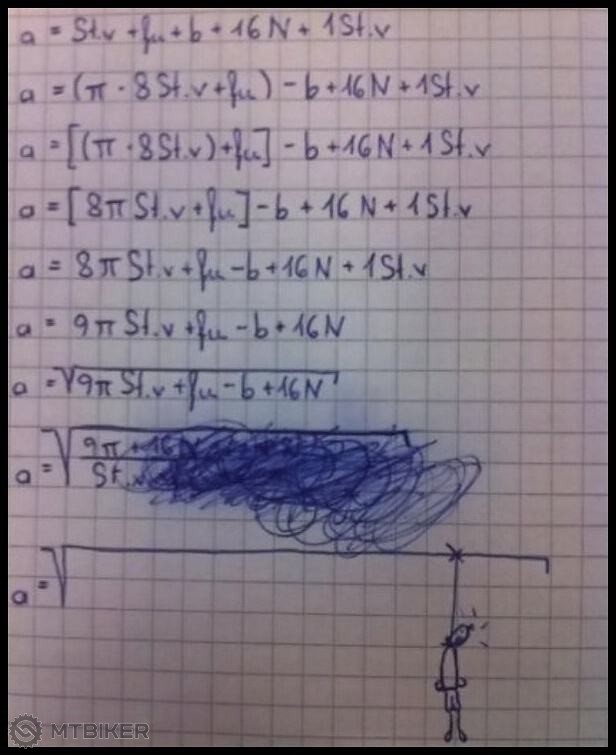 a = St.v + fu + b + 16N + 1St.v
a = (π · 8St.v + fu) - b + 16N + 1St.v
a = [(π · 8St.v) + fu] - b + 16N + 1St.v
a = [8π St.v + fu] - b + 16N + 1St.v
a = 8π St.v + fu - b + 16N + 1St.v
a = 9π St.v + fu - b + 16N
a = √9π St.v + fu - b + 16N
a = √9π + 16N
St.
a = √
MTBIKER